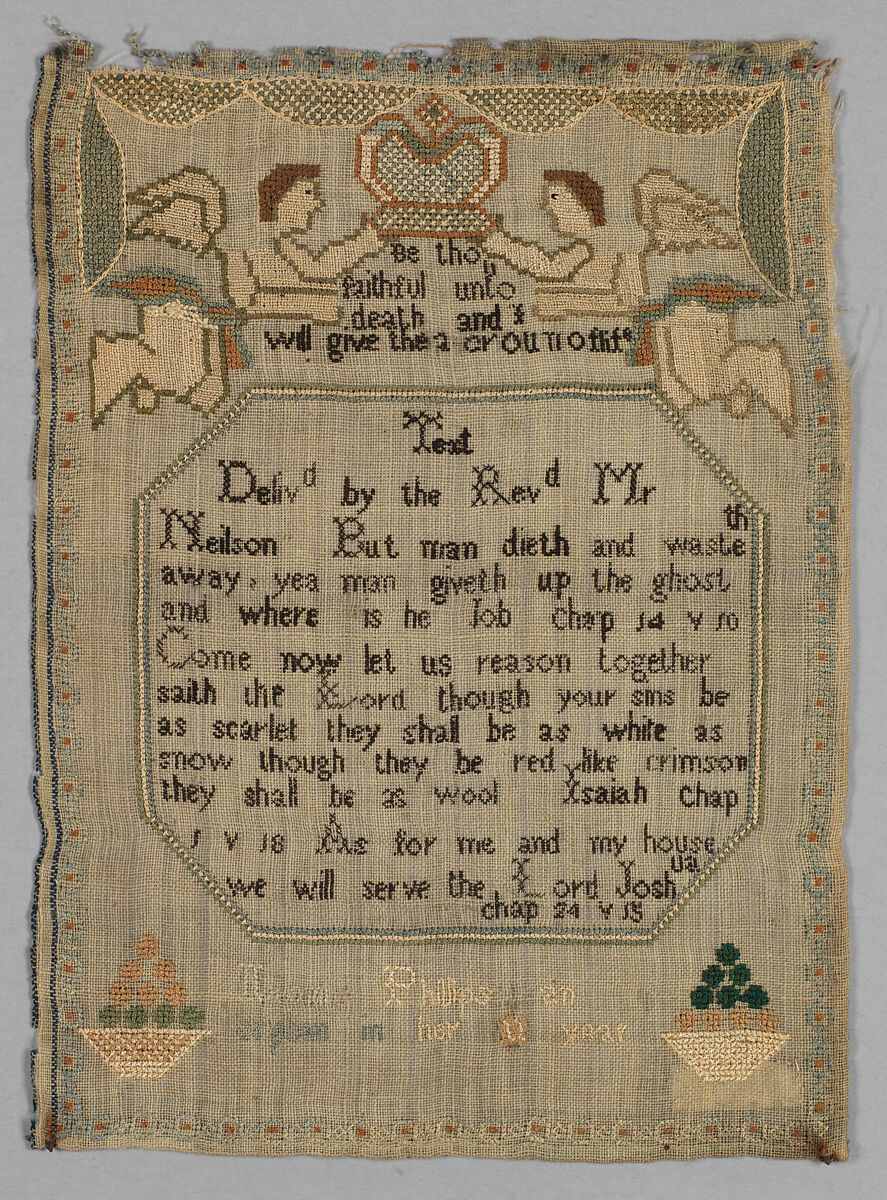 Be thou
faithful unto
death and I
will give the a croun of life
Text
Deliv^d by the Rev^d Mr
Neilson But man dieth and waste^th
away, yea man giveth up the ghost
and where is he Job Chap 14 V 10
Come now let us reason together
saith the Lord though your sins be
as scarlet they shall be as white as
snow though they be red like crimson
they shall be as wool Isaiah Chap
1 V 18 As for me and my house
we will serve the Lord Josh^ua
chap 24 V 15
Phillips an
orphan in her year